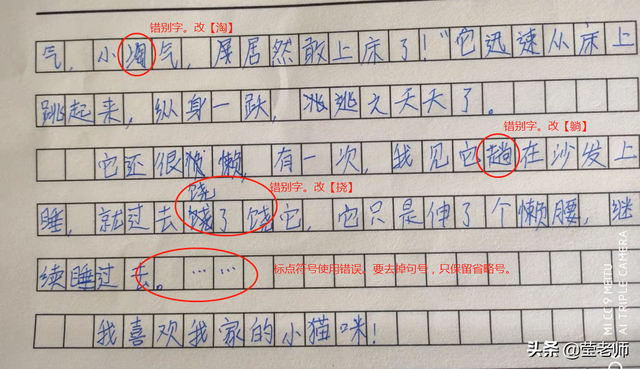 错别字。改【淘】
气,小淘气,居然敢上床了!"它迅速从床上
跳起来,纵身一跃,逃之夭夭了。
错别字。改【躺】
它还很懒,有一次,我见它趟在沙发上
错别字。改【挠】
饶
睡,就过去饶了饶它,它只是伸了个懒腰,继
续睡过去。……
标点符号使用错误。要去掉句号,只保留省略号。
我喜欢我家的小猫咪!
头条 @莹老师
AI TRIPLE CAMERA